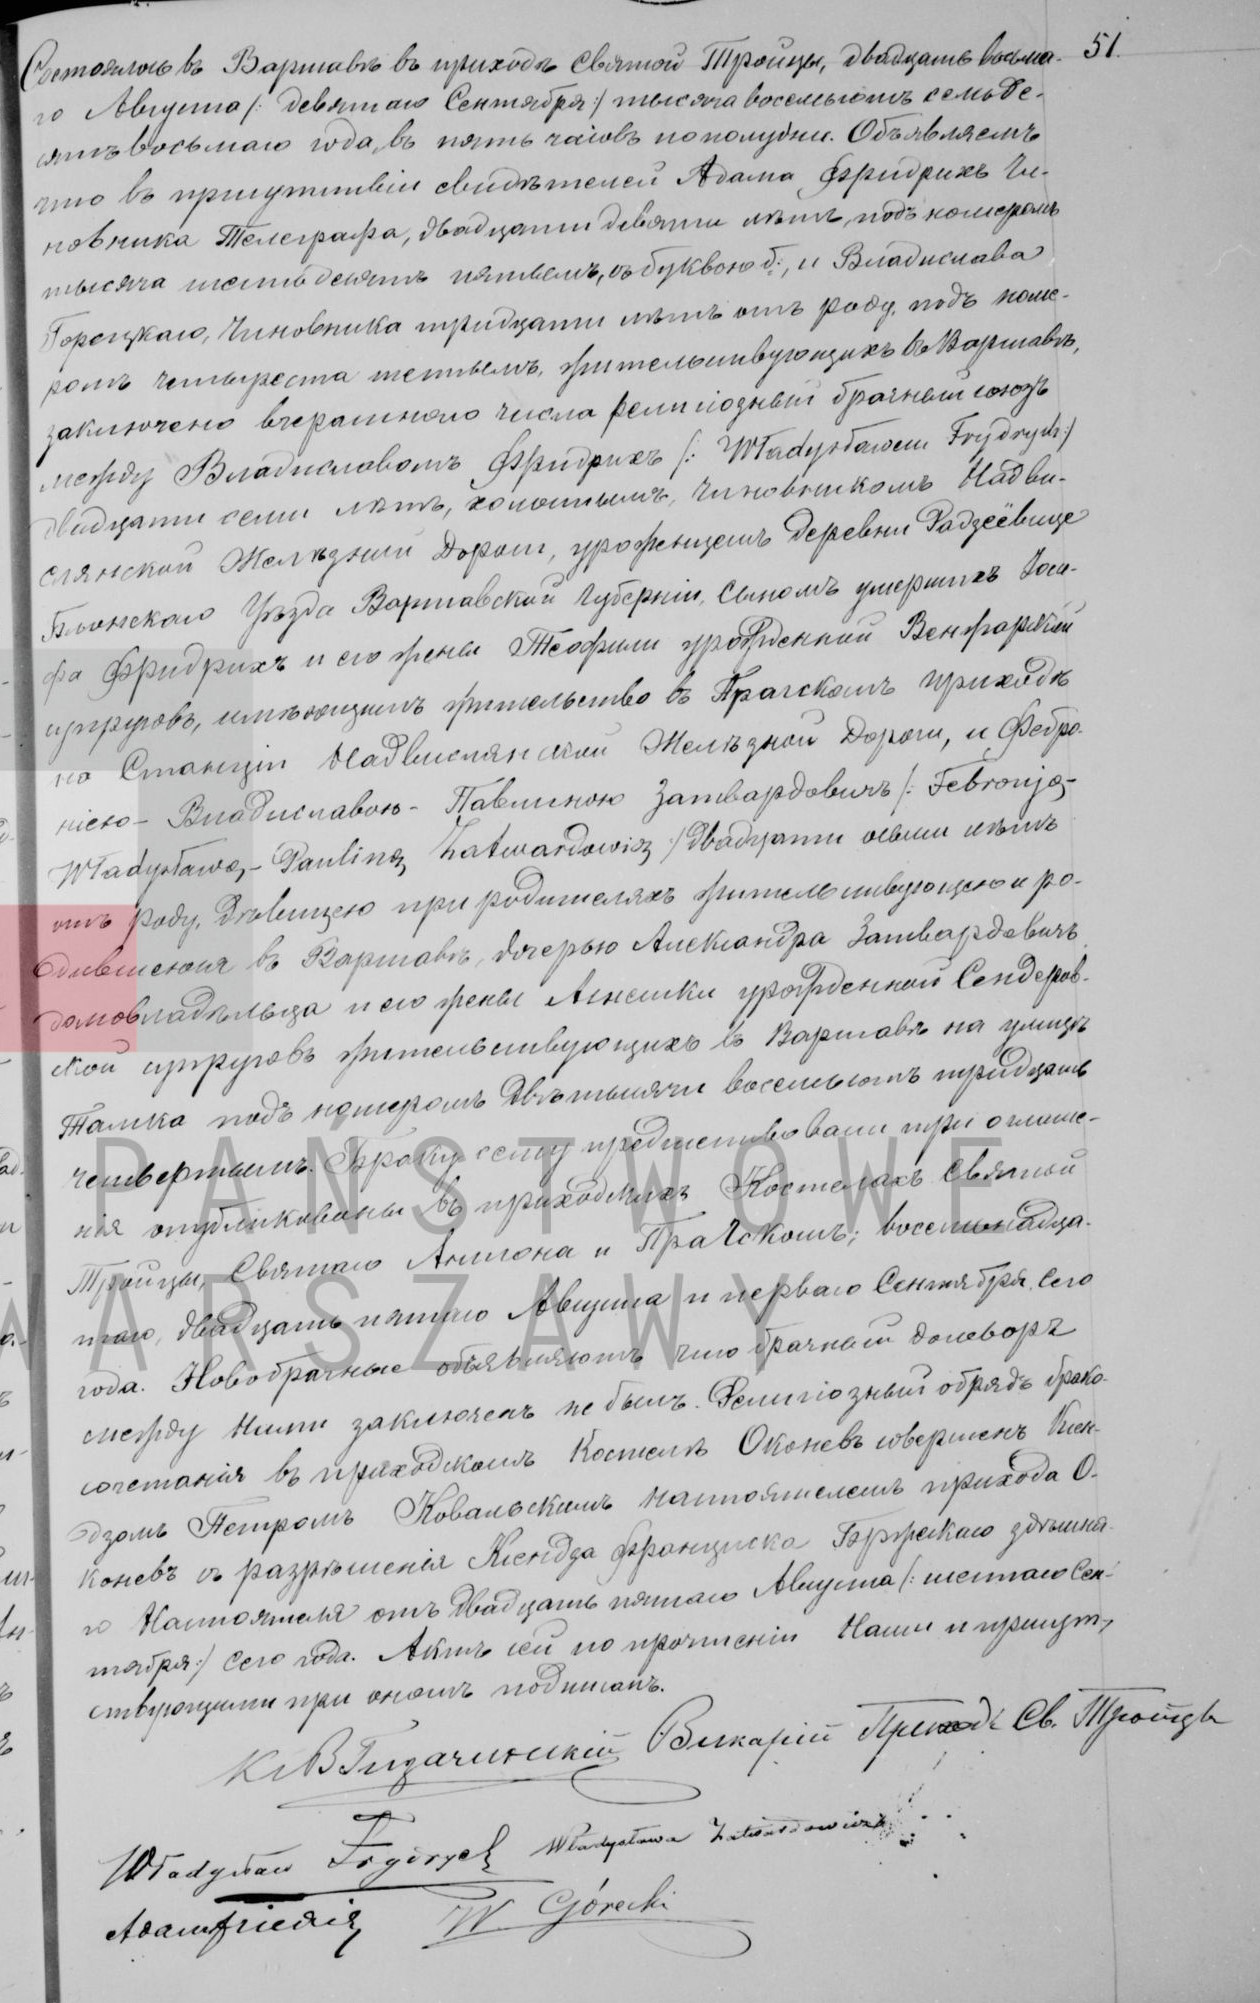 51.
Состоялось въ Варшавѣ въ приходѣ Святой Тройцы, двадцать восьма-
го Августа /: девятаго Сентября :/ тысяча восемьсотъ семьде-
сятъ восьмаго года, въ пять часовъ пополудни. Объявляемъ
что въ присутствіи свидѣтелей Адама Фридрихъ Чи-
новника Телеграфа, двадцати девяти лѣтъ, подъ номеромъ
тысяча шестьдесятъ пятымъ, съ буквою б:, и Владислава
Горецкаго, Чиновника тридцати лѣтъ отъ роду, подъ номе-
ромъ четыреста шестымъ, жительствующихъ въ Варшавѣ,
заключено вчерашняго числа религіозный брачный союзъ
между Владиславомъ Фридрихъ /: Władysławem Frydrych :/
двадцати семи лѣтъ, холостымъ, Чиновникомъ Надви-
слянской Желѣзной Дороги, уроженцемъ деревни Радзеёвице
Блонскаго Уѣзда Варшавской Губерніи, сыномъ умершихъ Іоси-
фа Фридрихъ и его жены Теофили урожденной
супруговъ, имѣющимъ жительство въ Прагскомъ приходѣ
на Станціи Надвислянской Желѣзной Дороги, и Февро-
ніею - Владиславою - Павлиною Затвардовичъ /: Febronją-
Władysławą - Pauliną Zatwardowicz :/ двадцати осьми лѣтъ
отъ роду, Дѣвицею при родителяхъ жительствующею и ро-
дившеюся въ Варшавѣ, дочерью Александра Затвардовичъ
домовладѣльца и его жены Агнешки урожденной Сендеров-
ской супруговъ жительствующихъ въ Варшавѣ на улицѣ
Тамка подъ номеромъ двѣ тысячи восемьсотъ тридцать
четвертымъ. Браку сему предшествовали три оглаше-
нія опубликованы въ приходскихъ Костелахъ Святой
Тройцы, Святаго Антона и Прагскомъ; восемьнадца-
таго, двадцать пятаго Августа и перваго Сентября сего
года. Новобрачные объявляютъ что брачный договоръ
между ними заключенъ не былъ. Религіозный обрядъ брако-
сочетанія въ приходскомъ Костелѣ Оконевъ совершенъ Ксен-
дзомъ Петромъ Ковальскимъ Настоятелемъ прихода О-
коневъ съ разрѣшенія Ксендза Франциска Бржескаго здѣшня-
го Настоятеля отъ двадцать пятаго Августа /: шестаго Сен-
тября :/ сего года. Актъ сей по прочтеніи Нами и присут-
ствующими при ономъ подписанъ.
Викарій Прихода Св. Тройцы
Władysław Frydrych Władysława Zatwardowicz
Adam W Górecki
PAŃSTWOWE
WARSZAWY